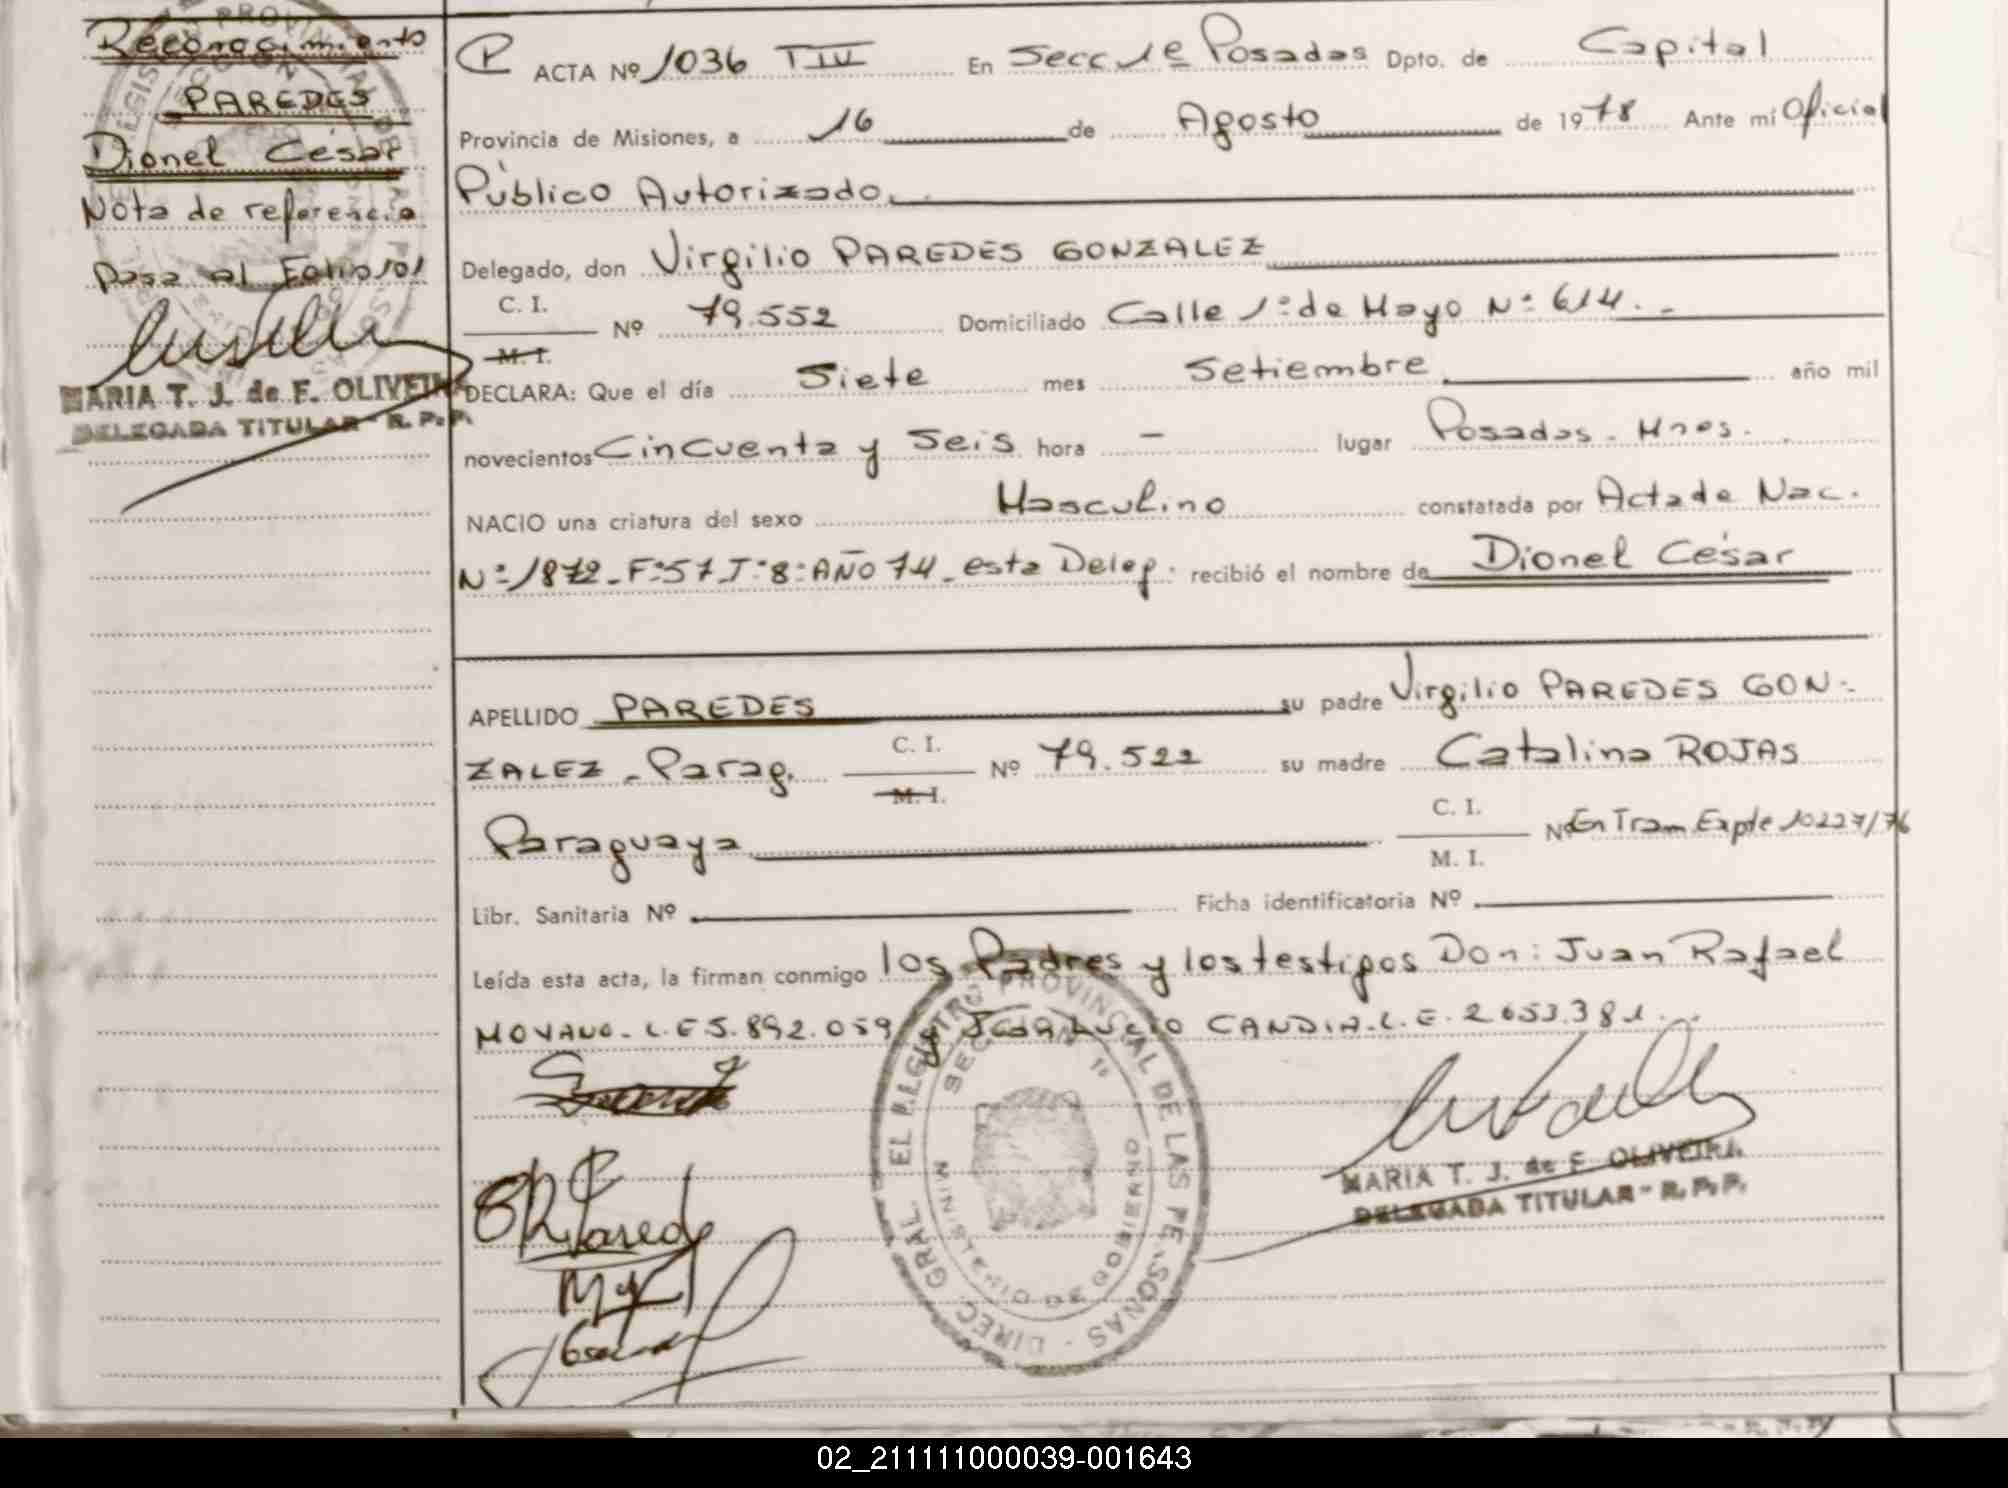 Reconocimiento
PAREDES
Dionel César
Nota de referencia
pasa al Folio 101
MARIA T. J. de F. OLIVEIRA
DELEGADA TITULAR - R. P. P.
ACTA Nº 1036 T IV En Secc 1ª Posadas Dpto. de Capital
Provincia de Misiones, a 16 de Agosto de 1978 Ante mí Oficial
Público Autorizado.
Delegado, don Virgilio PAREDES GONZALEZ
C. I.
Nº 79.552 Domiciliado Calle 1º de Mayo Nº 614.-
M. I.
DECLARA: Que el día Siete mes Setiembre año mil
novecientos Cincuenta y Seis hora - lugar Posadas. Mnes.
NACIO una criatura del sexo Masculino constatada por Acta de Nac.
Nº 1872 - F: 57 T: 8: AÑO 74 - esta Deleg. recibió el nombre de Dionel César
APELLIDO PAREDES su padre Virgilio PAREDES GON-
C. I.
ZALEZ - Parag. Nº 79.522 su madre Catalina ROJAS
M. I.
C. I.
Paraguaya Nº En Tram. Expte 10227/76
M. I.
Libr. Sanitaria Nº Ficha identificatoria Nº
Leída esta acta, la firman conmigo los Padres y los testigos Don: Juan Rafael
MOYANO - L.E 5.892.059 y Juan Lucio CANDIA - L.E. 2653.381.-
DIREC. GRAL. EL REGISTRO PROVINCIAL DE LAS PERSONAS
SECCION 1º
MINISTERIO DE GOBIERNO
Paredes
MARIA T. J. de F. OLIVEIRA
DELEGADA TITULAR - R. P. P.
02_211111000039-001643